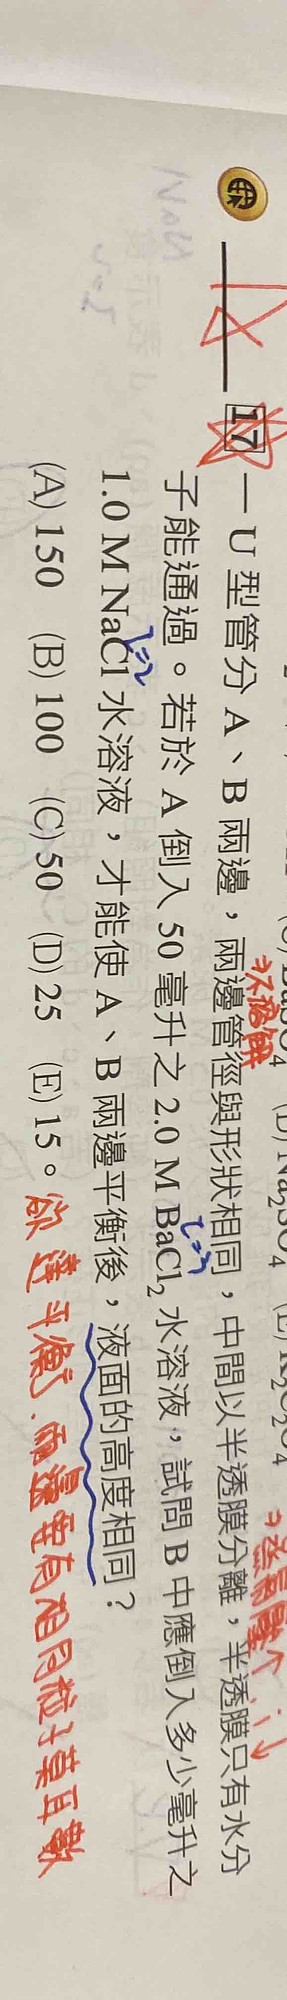 (C) BaSO4 (D) Na2SO4 (E) K2C2O4
17 一 U 型管分 A、B 兩邊，兩邊管徑與形狀相同，中間以半透膜分離，半透膜只有水分
子能通過。若於 A 倒入 50 毫升之 2.0 M BaCl2 水溶液，試問 B 中應倒入多少毫升之
i=3
1.0 M NaCl 水溶液，才能使 A、B 兩邊平衡後，液面的高度相同？
i=2
(A) 150 (B) 100 (C) 50 (D) 25 (E) 15。
欲達平衡，兩邊要有相同粒子莫耳數